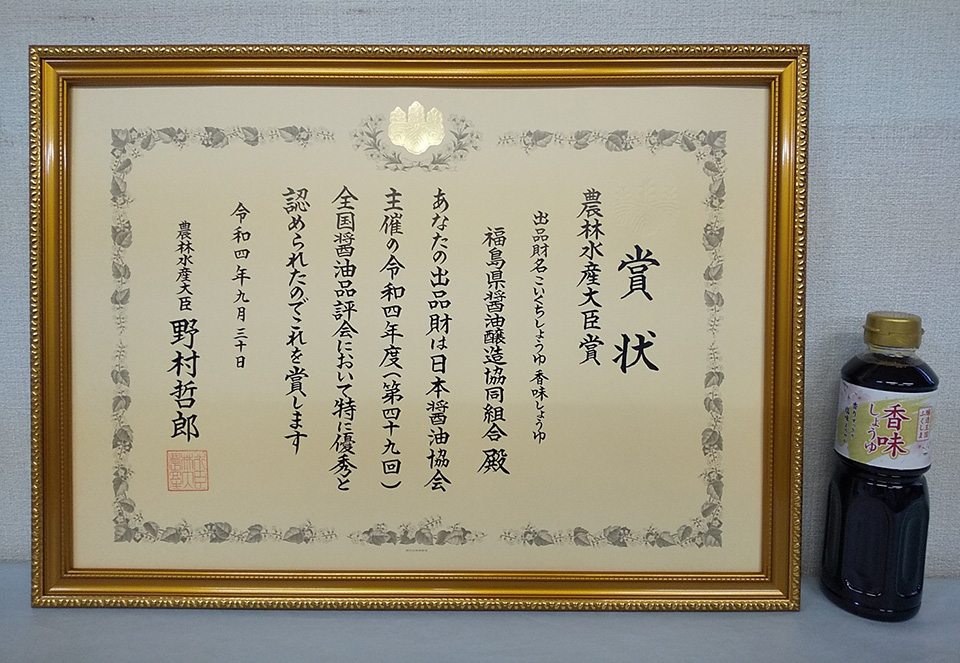 賞状
農林水産大臣賞
出品財名 こいくちしょうゆ 香味しょうゆ
福島県醤油醸造協同組合 殿
あなたの出品財は日本醤油協会
主催の令和四年度(第四十九回)
全国醤油品評会において特に優秀と
認められたのでこれを賞します
令和四年九月三十日
農林水産大臣 野村哲郎
香味
しょうゆ